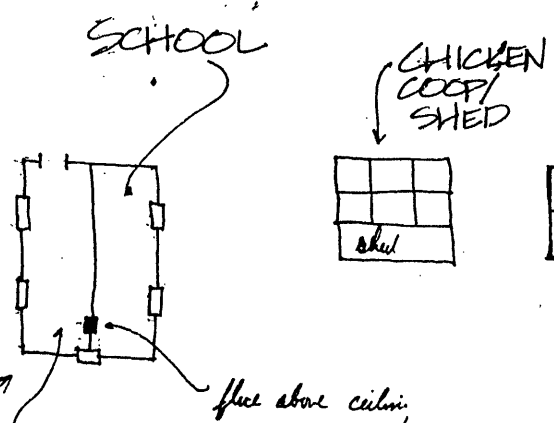 SCHOOL
CHICKEN
COOP/
SHED
shed
flue above ceiling